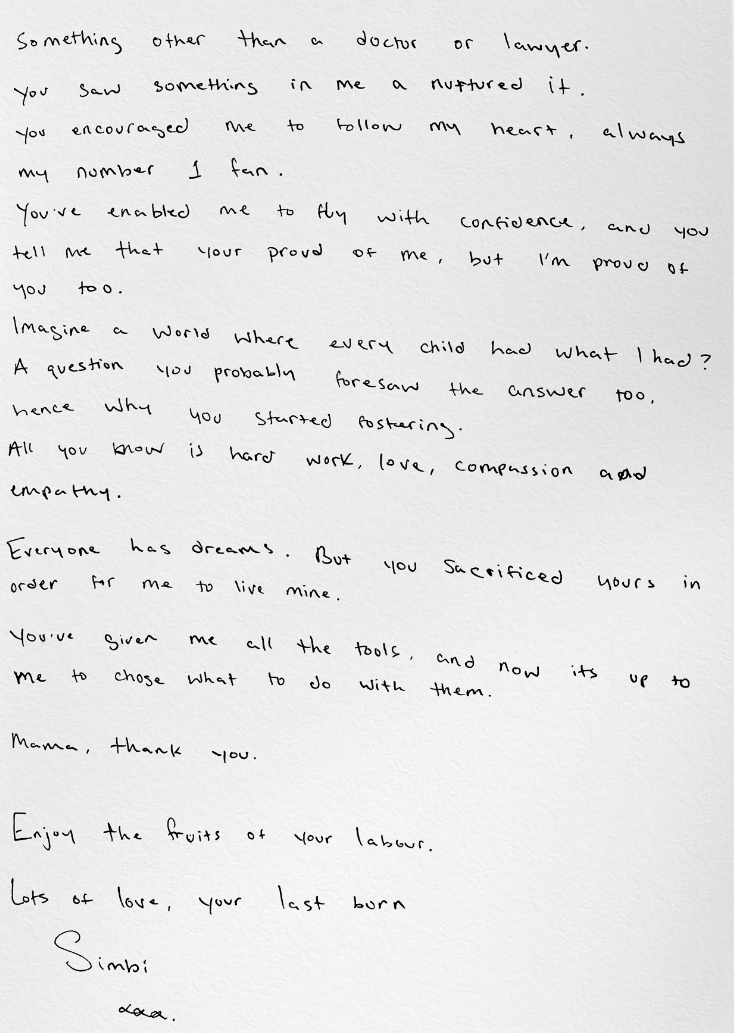 Something other than a doctor or lawyer.
You saw something in me a nurtured it.
You encouraged me to follow my heart, always
my number 1 fan.
You've enabled me to fly with confidence, and you
tell me that your proud of me, but I'm proud of
you too.
Imagine a world where every child had what I had?
A question you probably foresaw the answer too,
hence why you started fostering.
All you know is hard work, love, compassion and
empathy.
Everyone has dreams. But you sacrificed yours in
order for me to live mine.
You've given me all the tools, and now its up to
me to chose what to do with them.
Mama, thank you.
Enjoy the fruits of your labour.
Lots of love, your last born
Simbi
xxx.